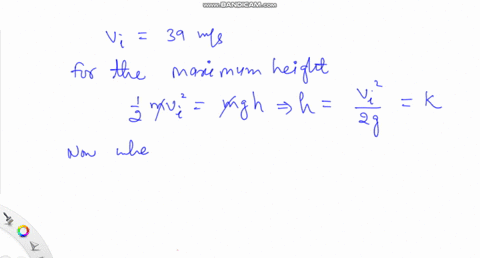 www.BANDICAM.com
Vi = 39 m/s
for the maximum height
1/2 mVi² = mgh ⇒ h = Vi²/2g = K
Now whe